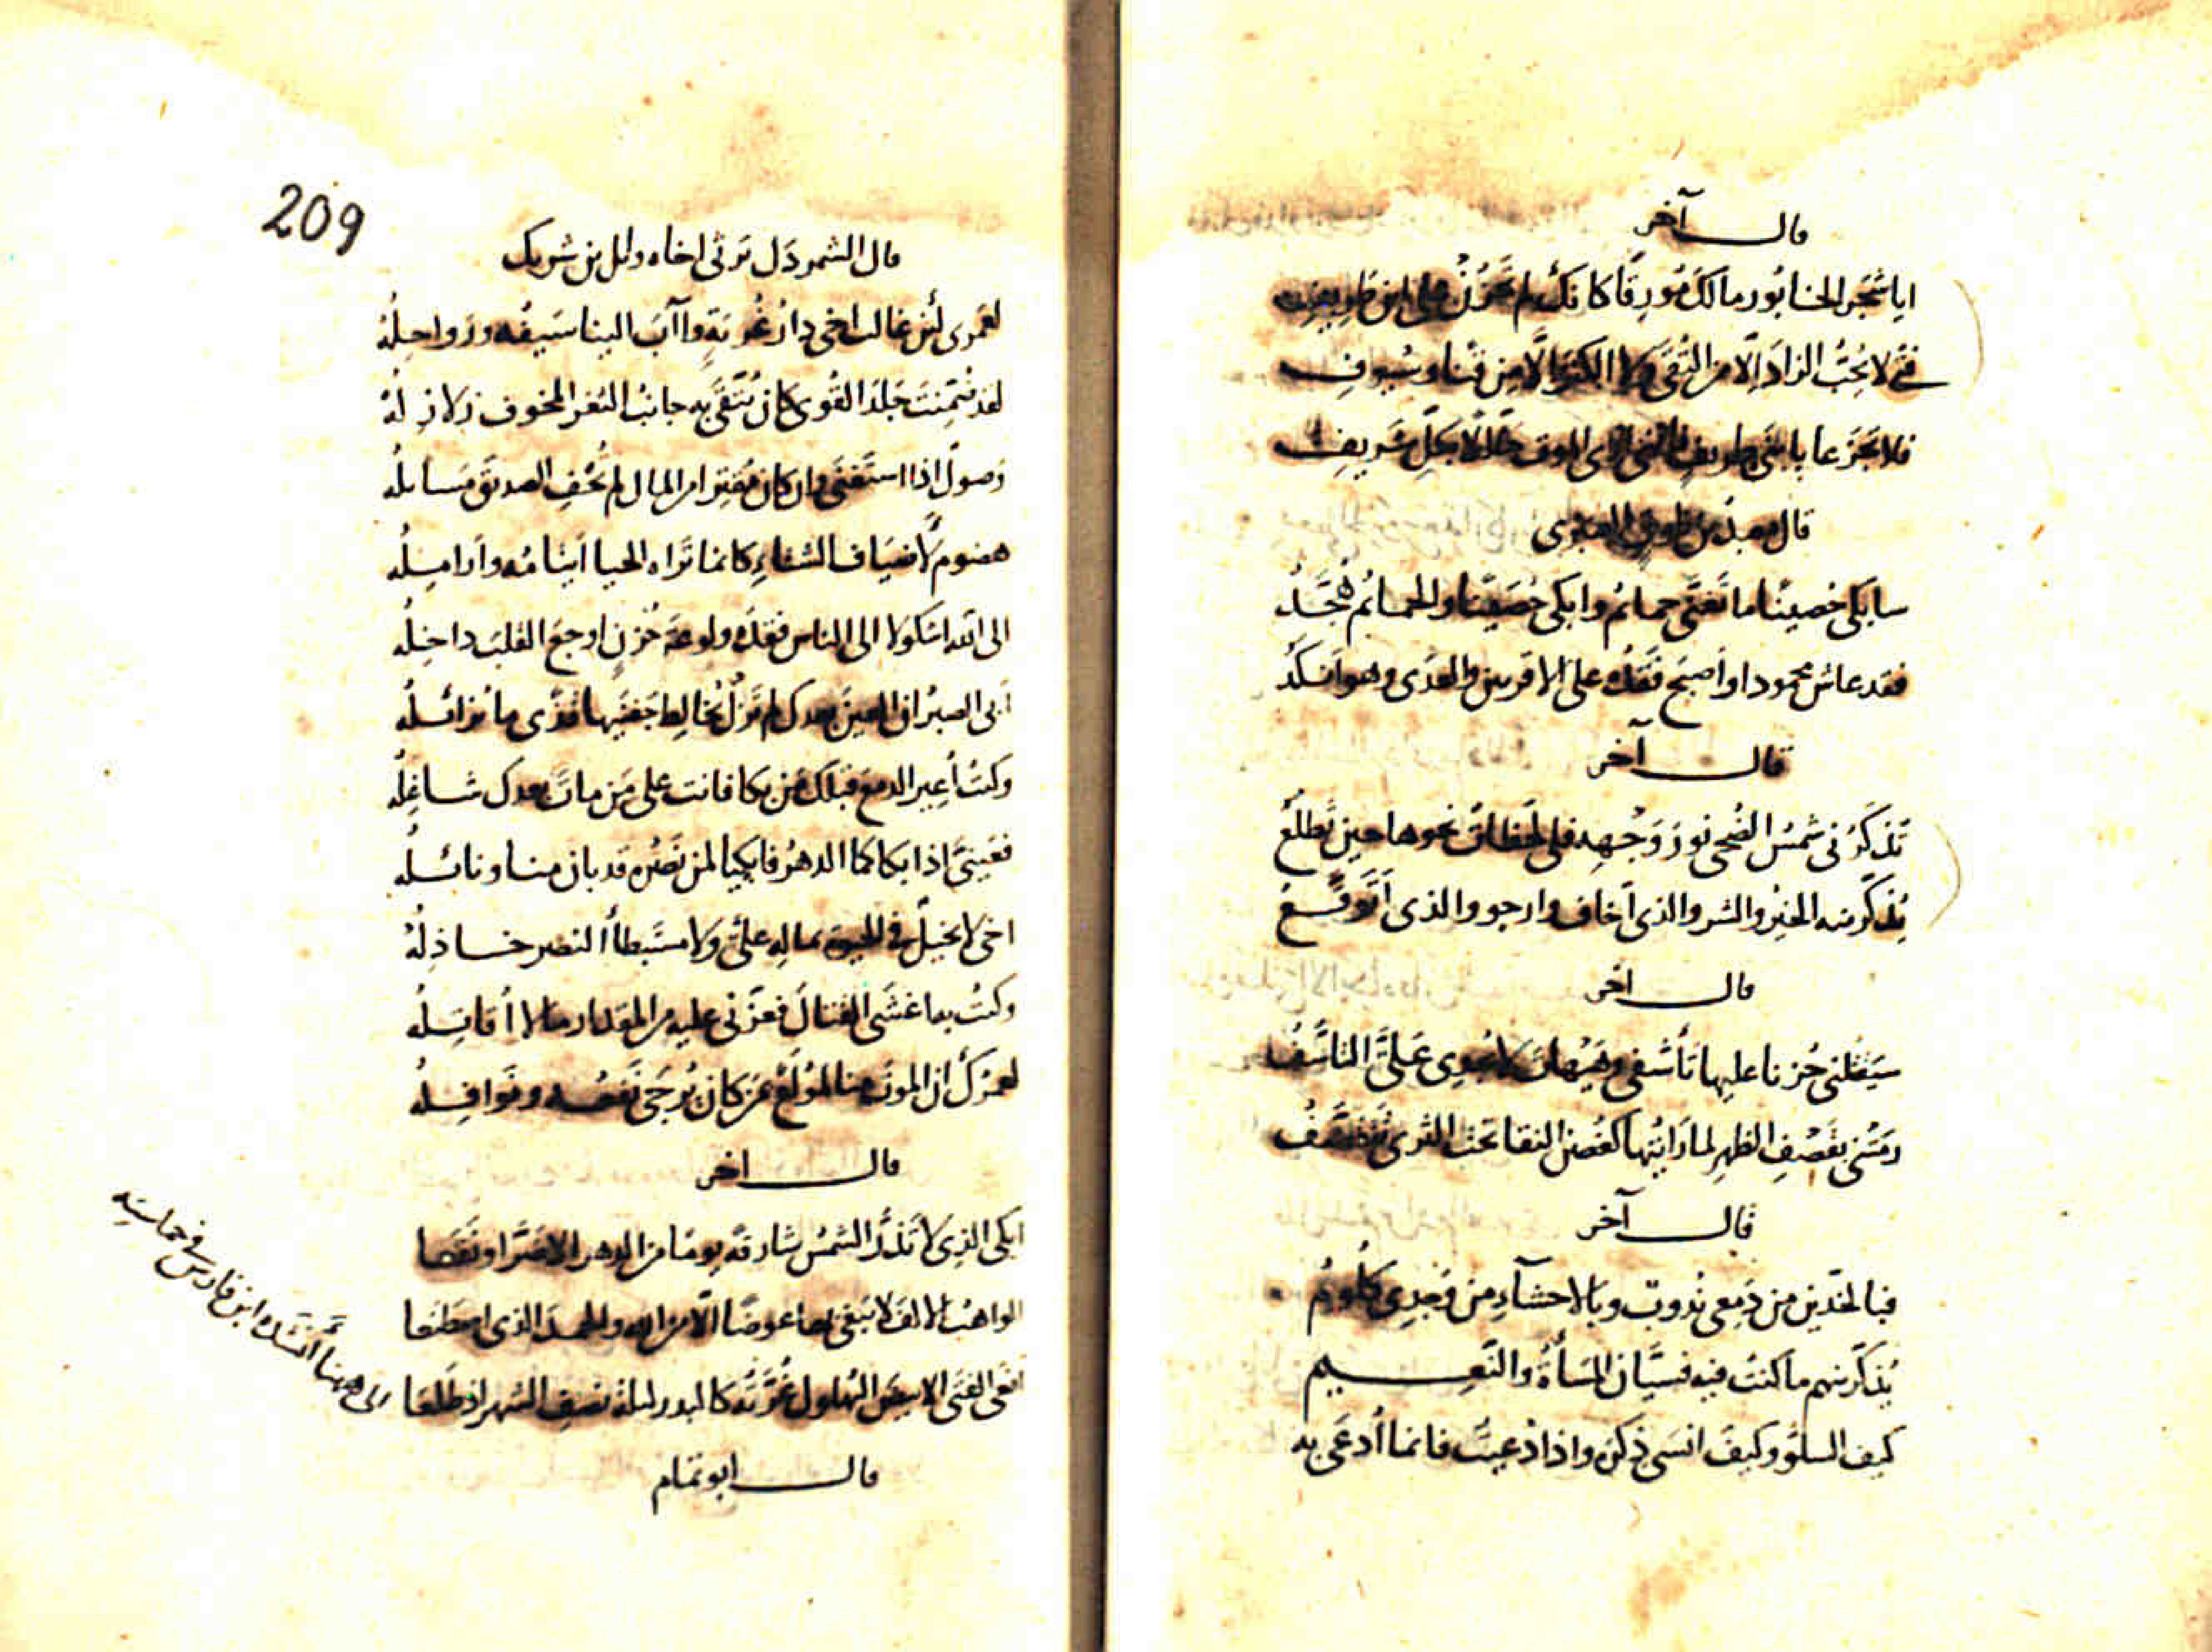 قال آخر
ايا شَجَر الخابُور مالكَ مُورِقًا كانكَ لم تَحْزُنْ على ابن طَرِيفِ
فتًى لا يُحِبُّ الزادَ اِلّا من التُقَى ولا الا من قنًا وسُيوفِ
فلا تَجزَعا يا ابنَى طريفٍ فاننى ارى الموت حَلّالًا بكلّ شَريفِ
قال معبدُ بن طوق العنبرى
سابكى حُصينًا ما تَغَنَّى حمائمُ وابكى حُصَينًا والحمائمُ هُجَّدُ
فقد عاش محمودا واَصبَح فَقْدُه على الاقربين والعِدَى وهو اَنكَدُ
قال آخر
تُذكّرُنى شمْسُ الضُحى نورَ وَجْهِه فلى لَحَظاتٌ نحوها حين تَطلُعُ
يُذكّرنيه الخيرُ والشر والذى اَخاف وارجو والذى اَتَوقَّعُ
قال آخر
سيَقتُلنى حُزنا عليها تأسّفى وهَيْهاتَ لا يُجدِى عَلَىَّ التاسّفُ
رَمَتْنى بقَصْفِ الظهرِ لما رَايتُها كغُصن النقا تحت الثرى تَتَقصَّفُ
قال آخر
فبالخدّين من دَمعى نُدوبٌ وبالاحشآءِ من وَجدِى كُلُومُ
يُذكّرنيهم ما كنتُ فيه فسيّان المَسأةُ والنَعِيم
كيف السلوُّ وكيفَ انسَى ذكرَه واذا دُعِيتُ فانما اُدعَى به
209
قال الشمردَل يَرثى اخاه وائل بن شريك
لعَمرى لئن غالت اخى دارُ غُربَةٍ واآبَ الينا سَيفُه ورَواحِلُه
لقد ضُمِّنت جَلدَ القُوى كان يُتّقَى به جانبُ الثغرِ المخوف زلازِلُهْ
وَصولٌ اذا استَغنَى وان كان مُقتِرا من المال لم يُحْفِ الصديقَ مَسائلُه
هضومٌ لاَضيَاف الشتاءِ كانما تَراه الحيا اَيتامُه واَرامِلُه
الى الله اشكو لا الى الناس فقدَه ولوعةَ حُزنٍ اوجعَ القلبَ داخِلُه
اَبى الصبرُ ان العينَ بعدك لم تَزَلْ يُخالِط جَفنَيها قذًى ما يُزائلُه
وكنتُ اُعِير الدمعَ قبلَك مَن بكا فانت على مَن ماتَ بعدك شاغِلُه
فعَينَىَّ اذا بكاكما الدهرُ فابكيا لمن نَصْرُه قد بان منا ونائلُه
اخى لا بخيلٌ فى الحيوة بماله علىَّ ولا مستَبطأُ النصرِ خاذِلُه
وكنتُ بها اَغشَى القتالَ فعزّنى عليه من المقدار ما لا اُقاتِلُه
لعمْرُكَ ان الموتَ منا لمُولَعٌ بمن كان يُرجَى نَفعُه ونَوافِلُه
قال اخر
ابكى الذى لا تَذُرُّ الشمسُ شارقةً يومًا من الدهر الا ضَرَّ او نَفَعا
الواهبَ الالفَ لا يَبغى بها عوضًا الّا من الله والحمدَ الذى اصطَنَعا
انعَى الفتَى الابيضَ البُهلول غُرّتُه كالبدر ليلةَ نصفِ الشهر اذ طَلَعا
قال ابو تمام
الى ههنا اَنشَدَه ابن فارس فى حماسته